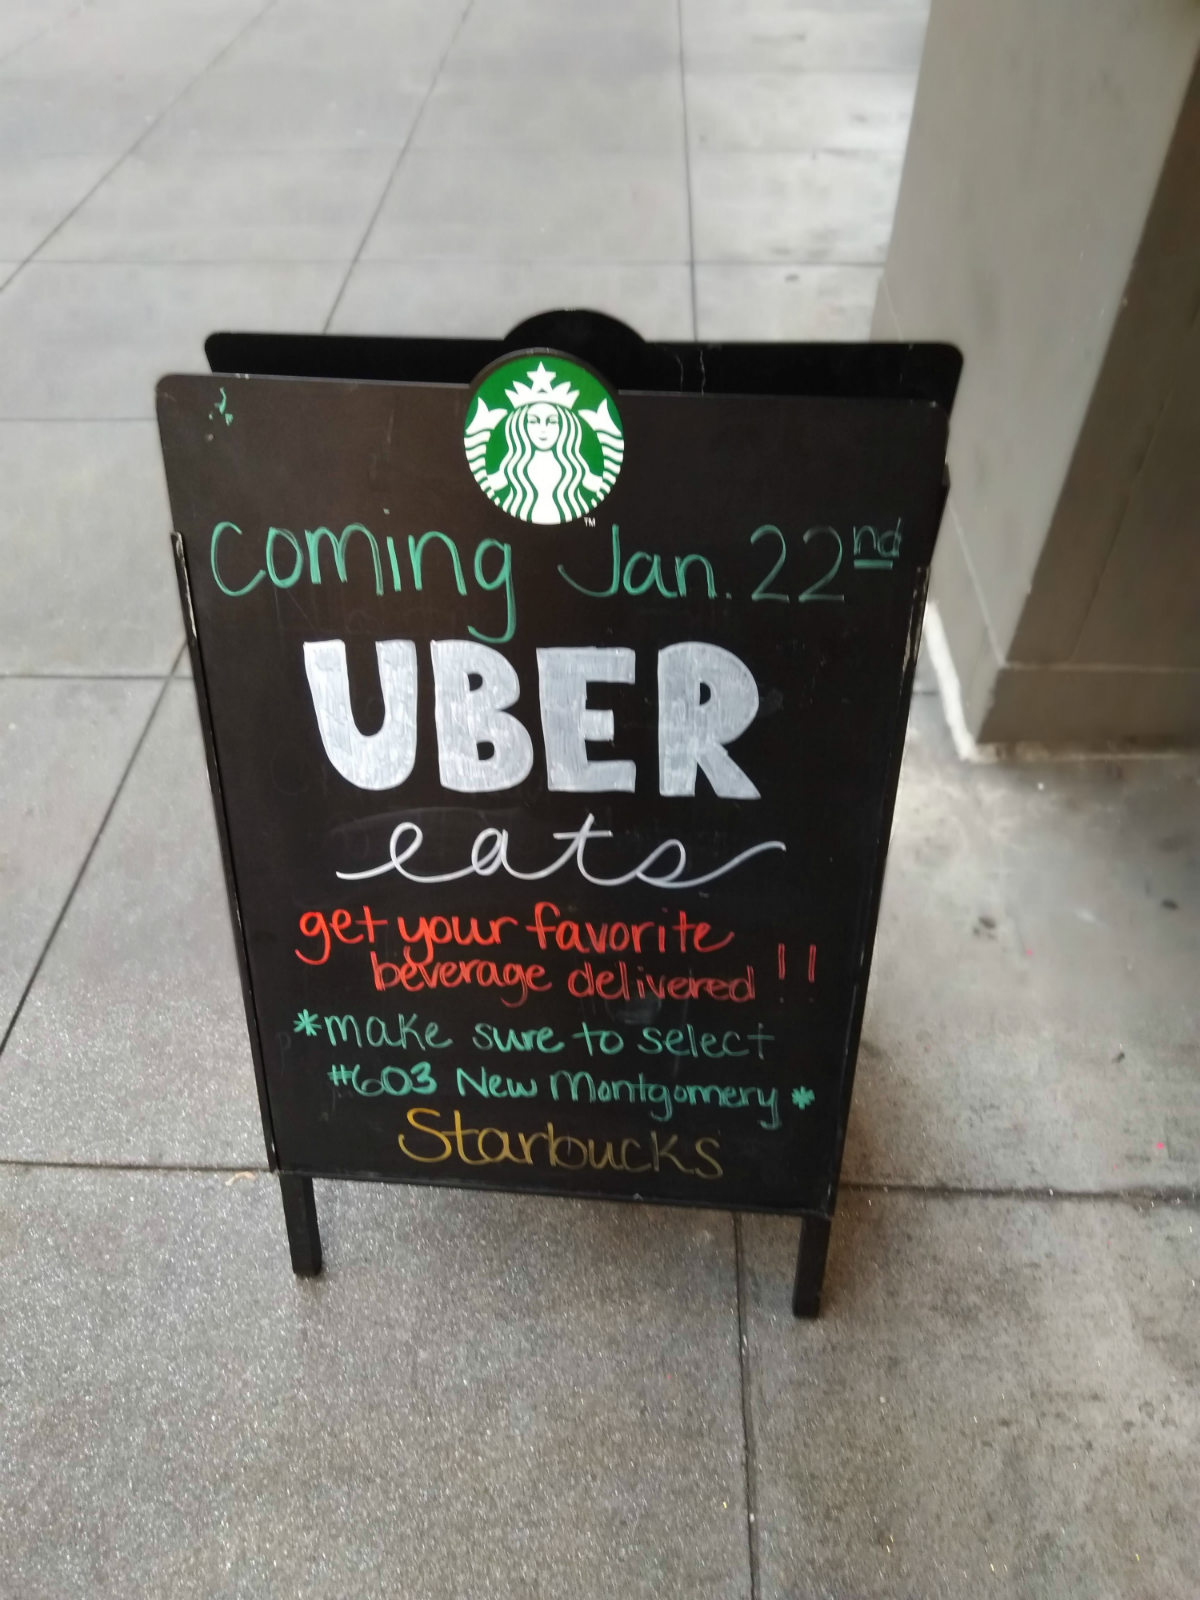 TM
Coming Jan. 22nd
UBER
eats
get your favorite
beverage delivered!!
*make sure to select
#603 New Montgomery*
Starbucks